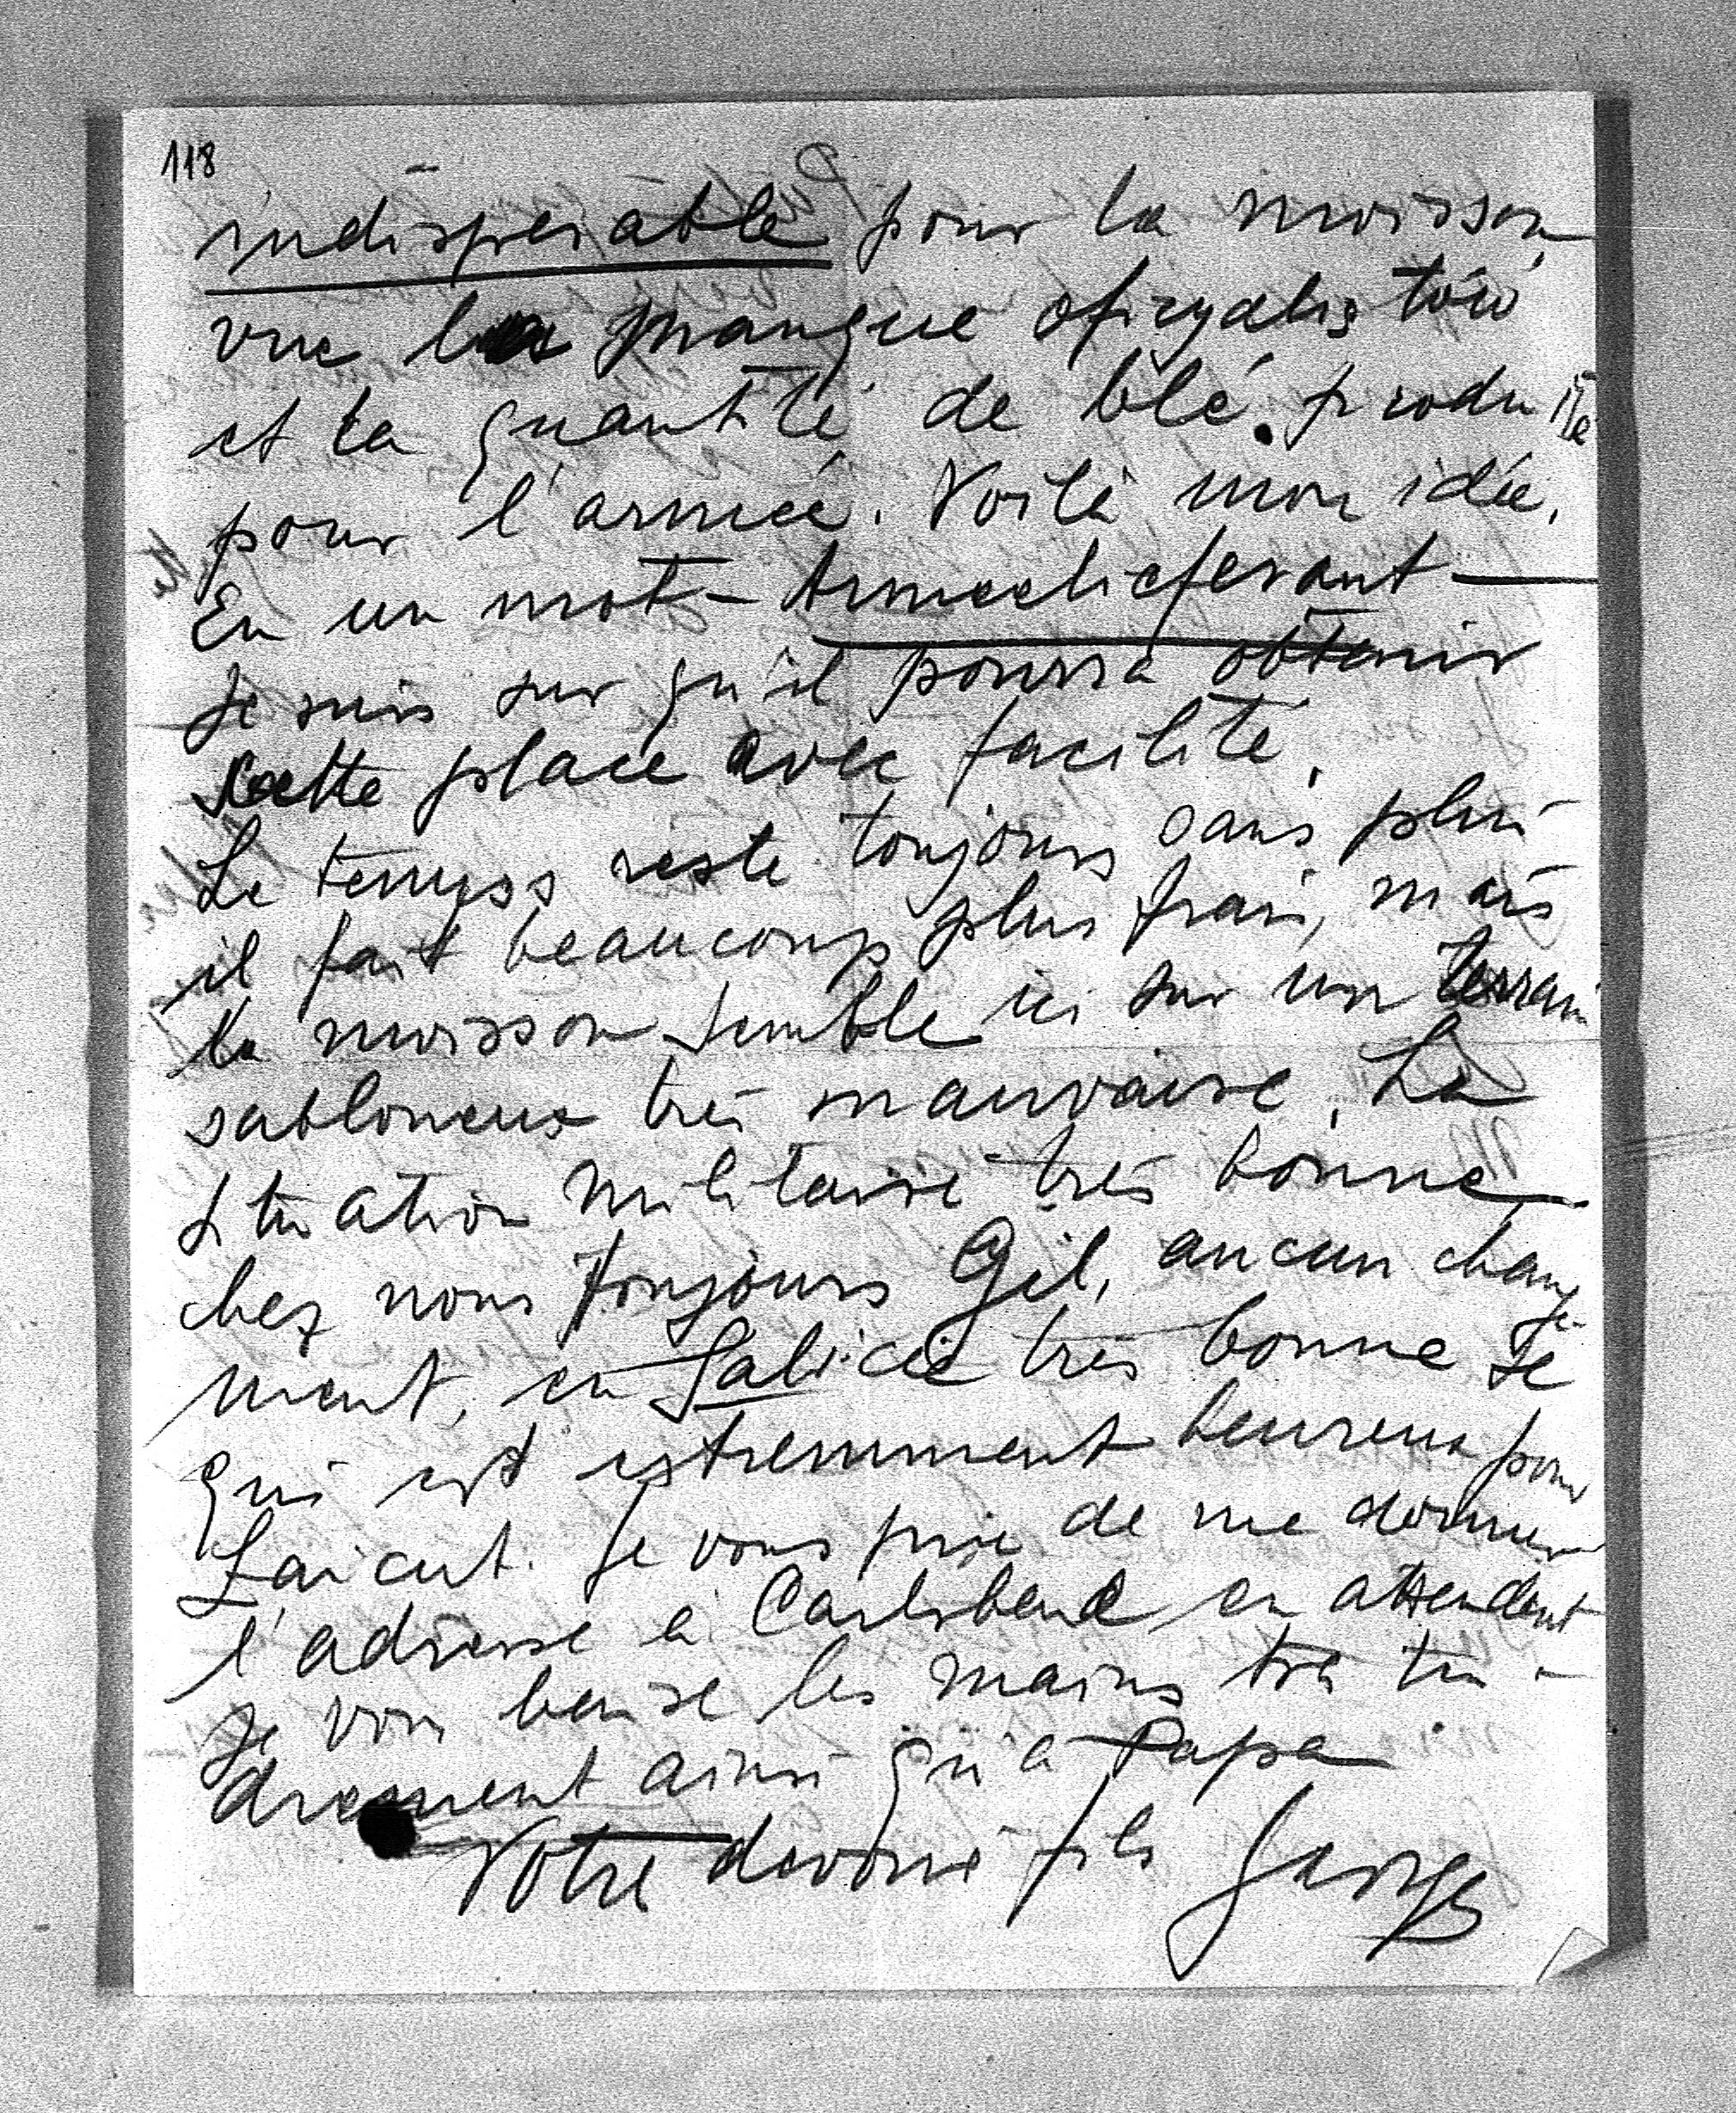 118
indispesable pour la moisson,
vue le manque oficyalistów
et la quantité de blé produite
pour l'armée. Voilà mon idée.
En un mot – Armeelieferant –
Je suis sur qu'il pourra obtenir
cette place avec facilité.
Le temps reste toujours sans pluie
il fait beaucoup plus frais, mais
la moisson semble ici sur un terrain
sabloneux très mauvaise. La
situation militaire très bonne
chez nous toujours gil, aucun change
ment, en Galicie très bonne
qui est extremment heureux pour
Łańcut. Je vous prie de me donner
l'adresse à Carlsbad en attendent
Je vous baise les mains très ten-
drement ainsi qu'à Papa
Votre devoué fils George